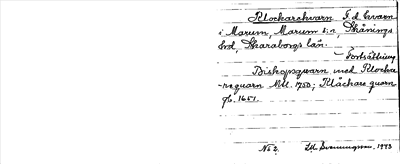 Klockarekvarn F. d. kvarn
i Marum, Marums sn, Skånings
hd, Skaraborgs län.
Fortsättning
Biskopsqvarn med Klocka
-reqvarn 1750; Kläckare quarn
1651.
No 2. 1943